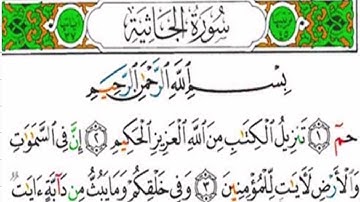 سُورَةُ الجَاثِيَةِ
بِسْمِ ٱللَّهِ ٱلرَّحْمَٰنِ ٱلرَّحِيمِ
حمٓ ١ تَنزِيلُ ٱلْكِتَٰبِ مِنَ ٱللَّهِ ٱلْعَزِيزِ ٱلْحَكِيمِ ٢ إِنَّ فِى ٱلسَّمَٰوَٰتِ
وَٱلْأَرْضِ لَءَايَٰتٍ لِّلْمُؤْمِنِينَ ٣ وَفِى خَلْقِكُمْ وَمَا يَبُثُّ مِن دَآبَّةٍ ءَايَٰتٌ